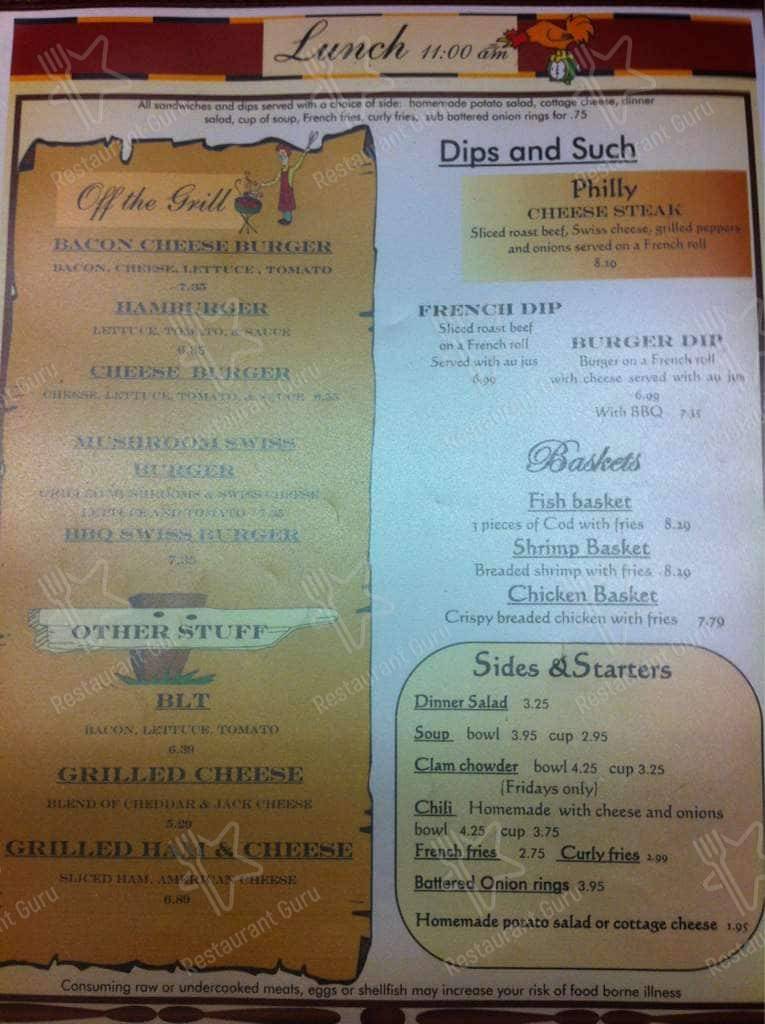 Lunch 11:00 am
All sandwiches and dips served with a choice of side: homemade potato salad, cottage cheese, dinner
salad, cup of soup, French fries, curly fries, sub battered onion rings for .75
Off the Grill
BACON CHEESE BURGER
BACON, CHEESE, LETTUCE , TOMATO
7.35
HAMBURGER
LETTUCE, TOMATO, & SAUCE
CHEESE BURGER
CHEESE, LETTUCE, TOMATO, & SAUCE
MUSHROOM SWISS
BURGER
GRILLED MUSHROOMS & SWISS CHEESE
LETTUCE AND TOMATO 7.35
BBQ SWISS BURGER
7.35
OTHER STUFF
BLT
BACON, LETTUCE, TOMATO
6.39
GRILLED CHEESE
BLEND OF CHEDDAR & JACK CHEESE
5.29
GRILLED HAM & CHEESE
SLICED HAM, AMERICAN CHEESE
6.89
Dips and Such
Philly
CHEESE STEAK
Sliced roast beef, Swiss cheese, grilled peppers
and onions served on a French roll
8.29
FRENCH DIP
Sliced roast beef
on a French roll
Served with au jus
6.99
BURGER DIP
Burger on a French roll
with cheese served with au jus
6.99
With BBQ 7.35
Baskets
Fish basket
3 pieces of Cod with fries 8.29
Shrimp Basket
Breaded shrimp with fries 8.29
Chicken Basket
Crispy breaded chicken with fries 7.79
Sides & Starters
Dinner Salad 3.25
Soup bowl 3.95 cup 2.95
Clam chowder bowl 4.25 cup 3.25
(Fridays only)
Chili Homemade with cheese and onions
bowl 4.25 cup 3.75
French fries 2.75 Curly fries 2.99
Battered Onion rings 3.95
Homemade potato salad or cottage cheese 1.95
Consuming raw or undercooked meats, eggs or shellfish may increase your risk of food borne illness
Restaurant Guru